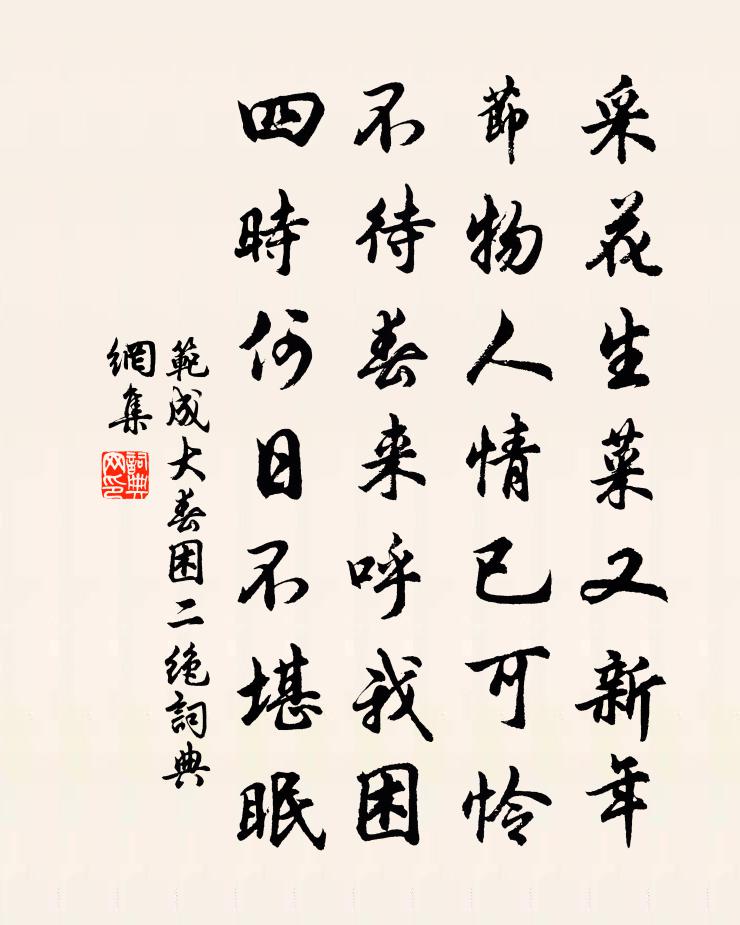 采花生菜又新年
節物人情已可怜
不待春来呼我困
四時何日不堪眠
範成大春困二絶詞典
網集
詞典
网印